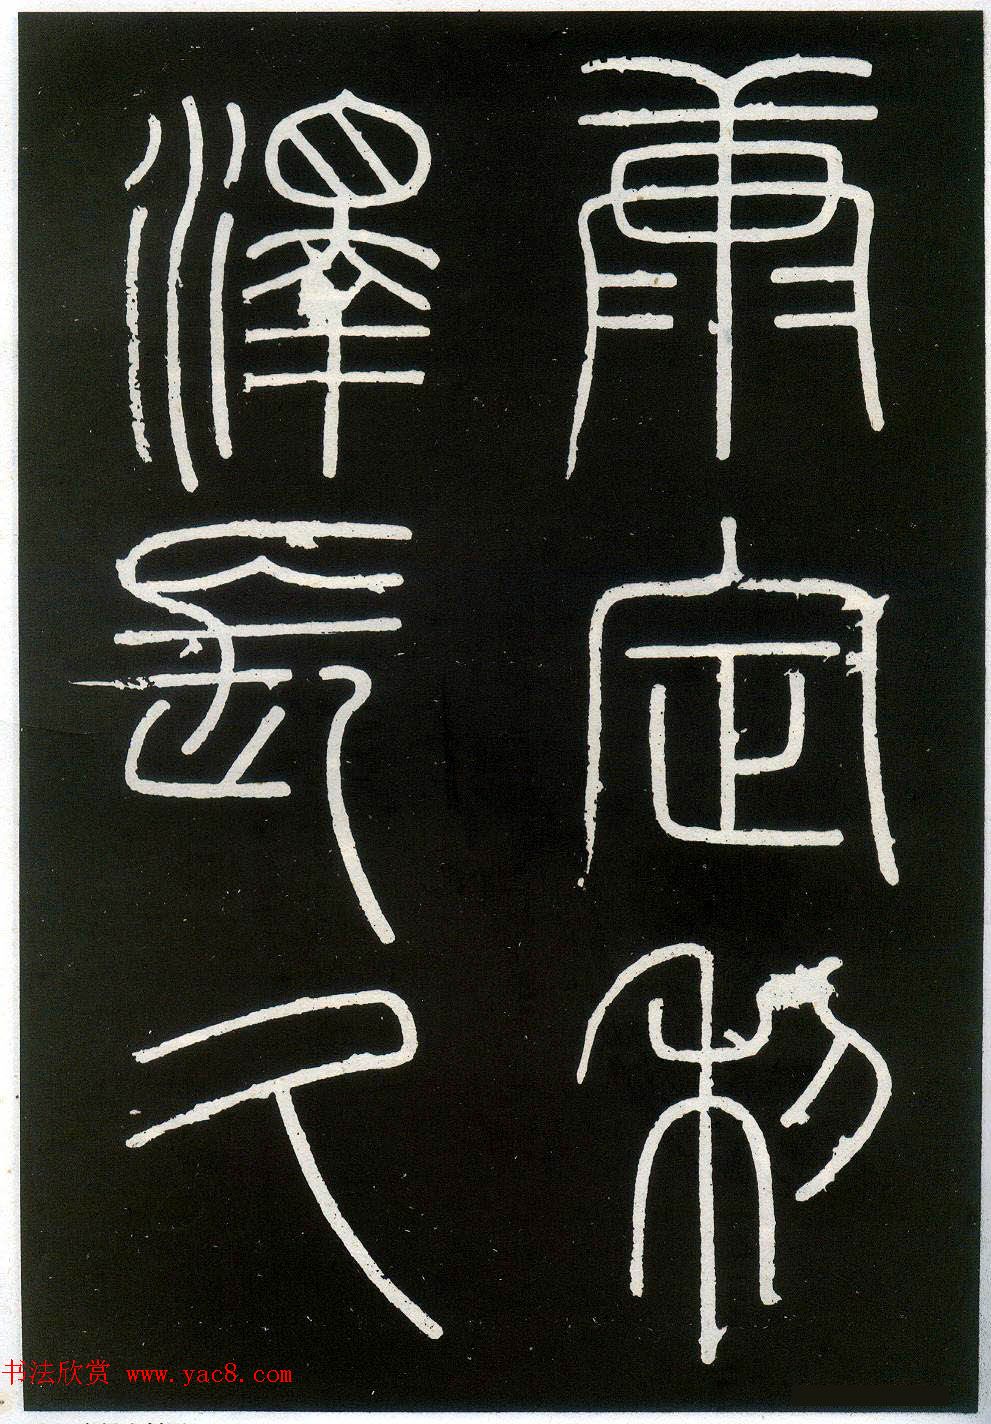 康定利
澤長久
书法欣赏 www.yac8.com